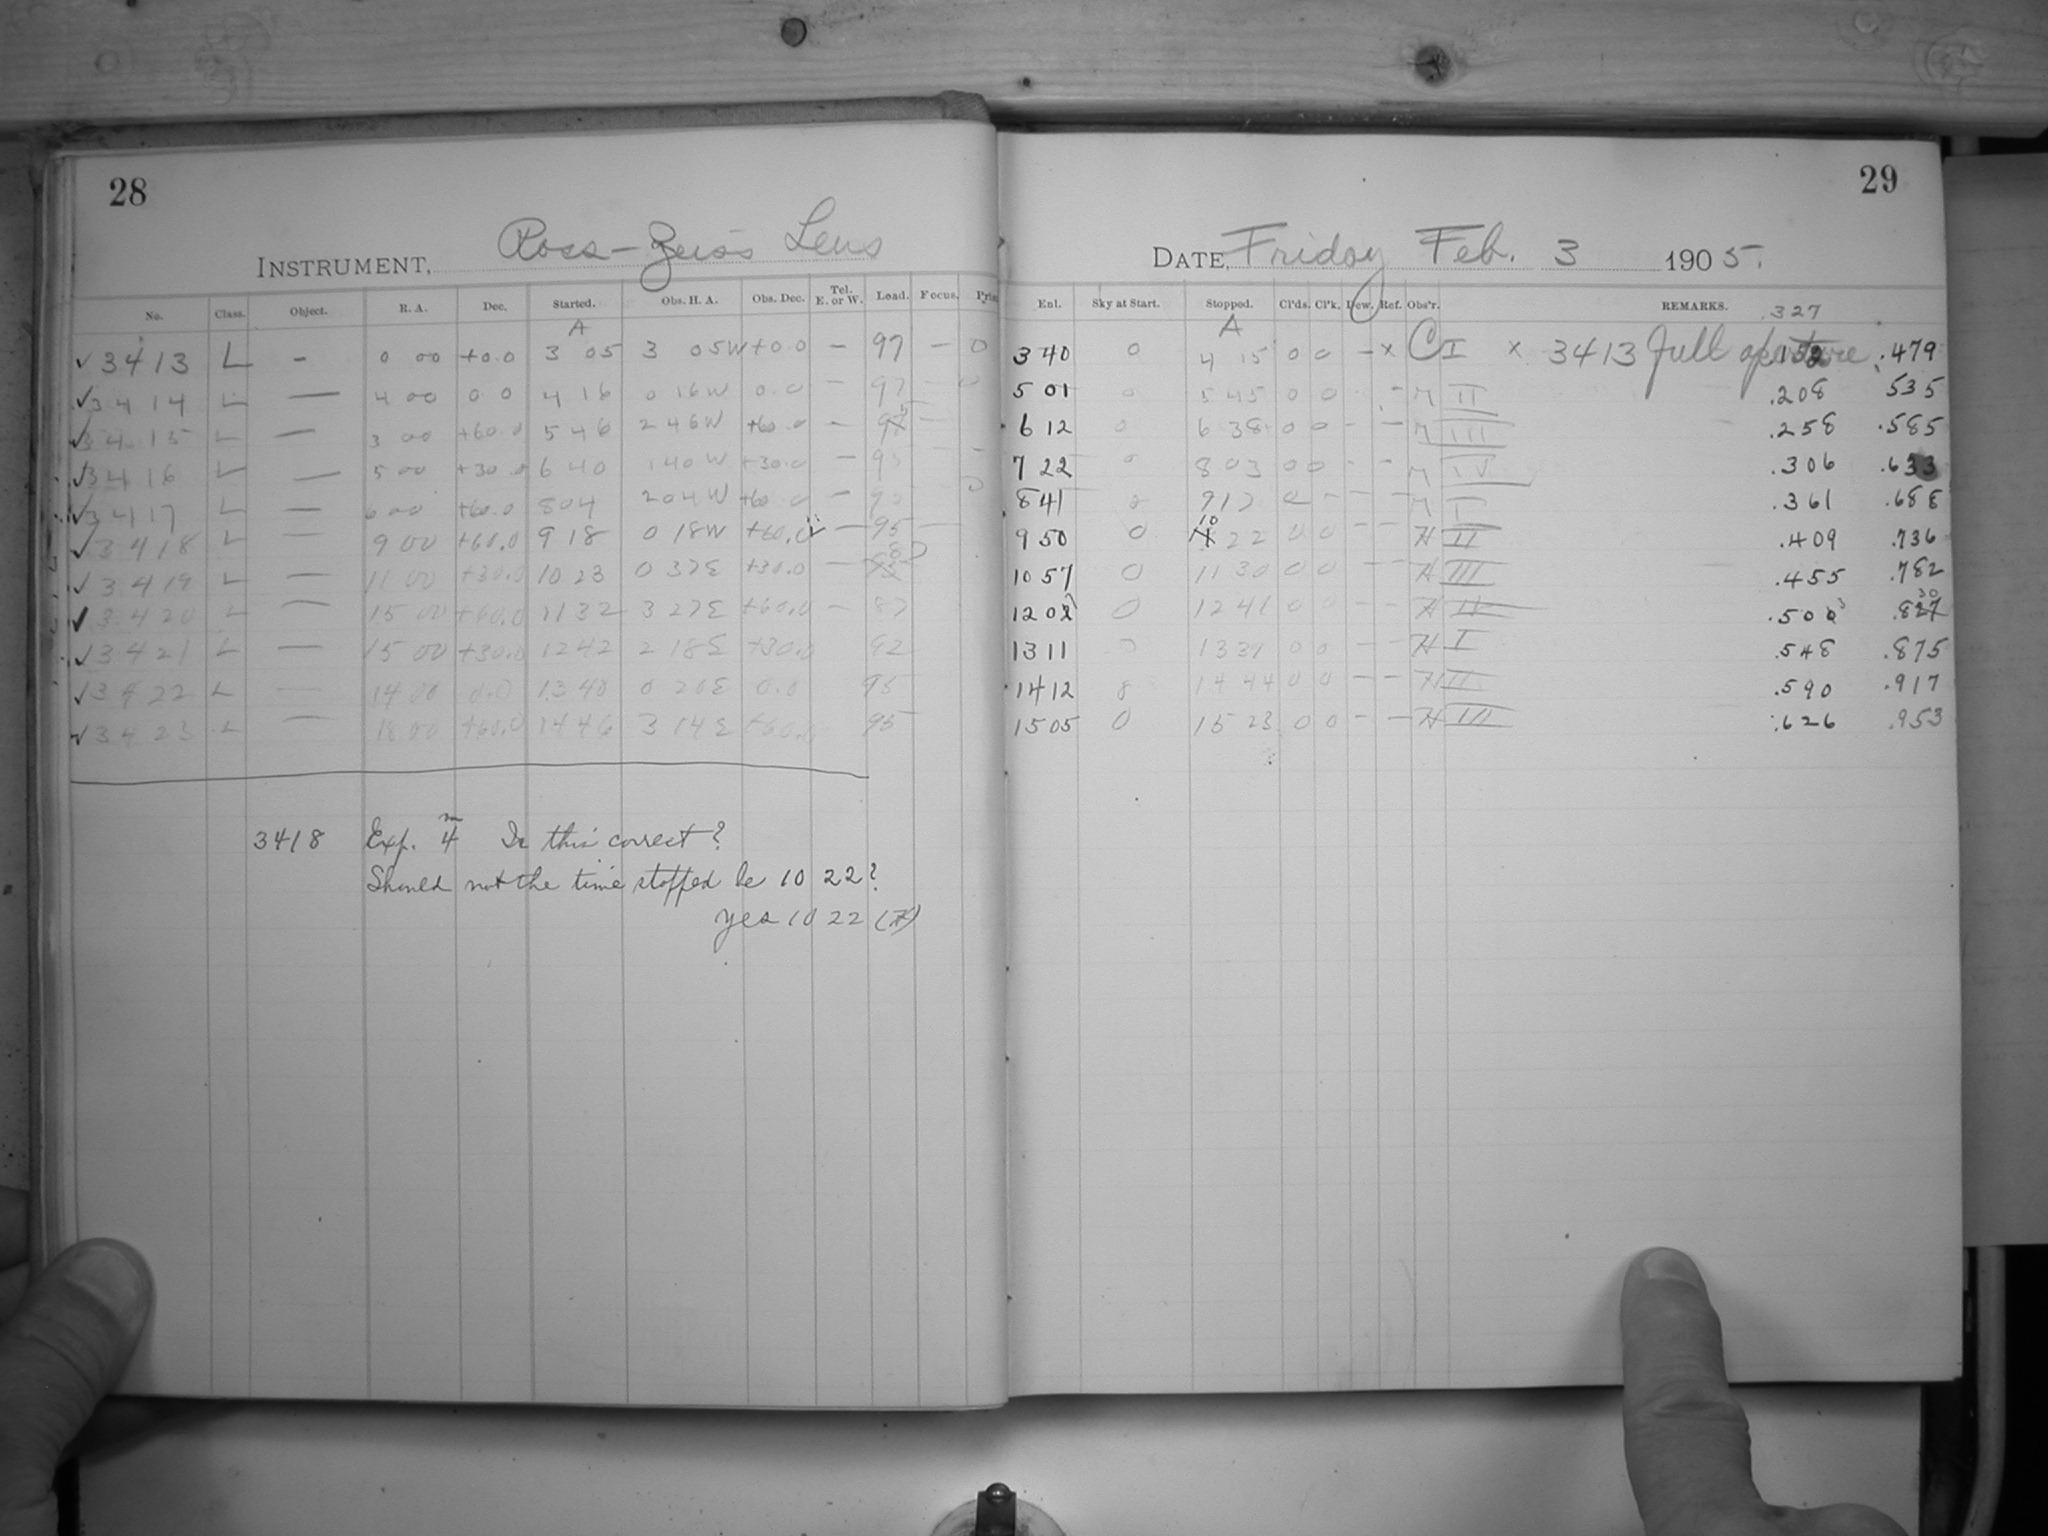 28
INSTRUMENT, Ross-Zeiss Lens
No. Class. Object. R. A. Dec. Started. Obs. H. A. Obs. Dec. Tel. E. or W. Load. Focus.
A
✓ 3413 L - 0 00 +0.0 3 05 3 05W +0.0 - 97 - 0
✓ 3414 L — 4 00 0.0 4 16 0 16W 0.0 - 97 - 0
✓ 3415 L — 3 00 +60.0 5 46 2 46W +60.0 - —
✓ 3416 L — 5 00 +30.0 6 40 1 40W +30.0 - 95 -
✓ 3417 L — 6 00 +60.0 8 04 2 04W +60.0 -
✓ 3418 L — 9 00 +60.0 9 18 0 18W +60.0 — 95 —
✓ 3419 L — 11 00 +30.0 10 23 0 37E +30.0 —
✓ 3420 L — 15 00 +60.0 11 32 3 27E +60.0 - 87
✓ 3421 L — 15 00 +30.0 12 42 2 18E +30.0 92
✓ 3422 L — 14 00 0.0 13 40 0 20E 0.0 95
✓ 3423 L — 18 00 +60.0 14 46 3 14E +60.0 95
3418 Exp. 4m Is this correct?
Should not the time stopped be 10 22?
yes 10 22 (H)
29
DATE, Friday Feb. 3 1905.
Enl. Sky at Start. Stopped. Cl'ds. Cl'k. Dew. Ref. Obs'r. REMARKS.
.327
A
3 40 0 4 15 0 0 - x C I x 3413 Full aperture .152 .479
5 01 0 5 45 0 0 - - M II .208 .535
6 12 0 6 38 0 0 - - M III .258 .585
7 22 0 8 03 0 0 - - M IV .306 .633
8 41 0 9 17 0 - - - M I .361 .688
9 50 0 10 22 0 0 - - H II .409 .736
10 57 0 11 30 0 0 - - H III .455 .782
12 07 0 12 41 0 0 - - H .503 .830
13 11 0 13 39 0 0 - - H I .548 .875
14 12 8 14 44 0 0 - - H II .590 .917
15 05 0 15 23 0 0 - - H III .626 .953